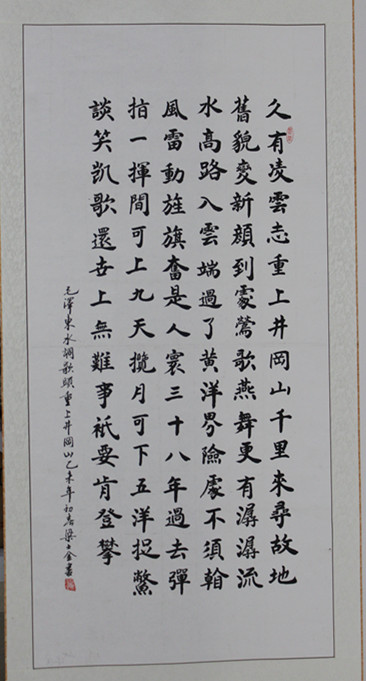 久有凌雲志重上井岡山千里來尋故地
舊貌變新顏到處鶯歌燕舞更有潺潺流
水高路入雲端過了黄洋界險處不須看
風雷動旌旗奮是人寰三十八年過去彈
指一揮間可上九天攬月可下五洋捉鱉
談笑凱歌還世上無難事衹要肯登攀
毛澤東水調歌頭重上井岡山乙未年初春梁士金書